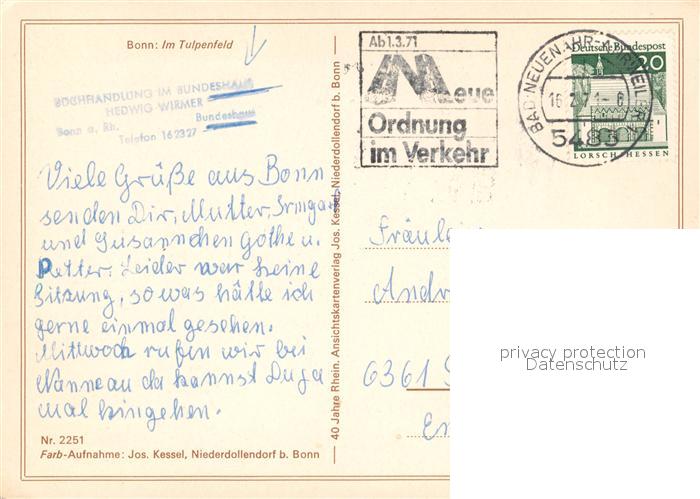 Bonn: Im Tulpenfeld
BUCHHANDLUNG IM BUNDESHAUS
HEDWIG WIRMER
Bonn a. Rh. Bundeshaus
Telefon 162327
Ab 1.3.71
Neue
Ordnung
im Verkehr
BAD NEUENAHR-AHRWEILER
16.2.71-6
5483
Deutsche Bundespost
20
LORSCH/HESSEN
Viele Grüße aus Bonn
senden Dir, Mutter, Irmgard
und Susannchen Gothe u.
Petter. Leider war keine
Sitzung, sowas hätte ich
gerne einmal gesehen.
Mittwoch rufen wir bei
an da kannst Du ja
mal hingehen.
Fräulein
Andr
6361
40 Jahre Rhein. Ansichtskartenverlag Jos. Kessel, Niederdollendorf b. Bonn
privacy protection
Datenschutz
Nr. 2251
Farb-Aufnahme: Jos. Kessel, Niederdollendorf b. Bonn